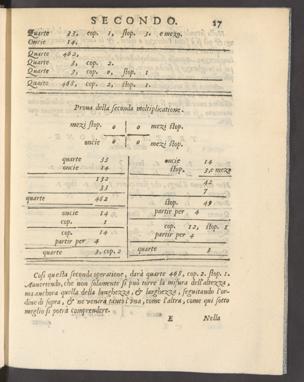 SECONDO. 27
Quarte 33, cop. 1, stop. 3. e mezo.
Oncie 14.
Quarte 462,
Quarte 3, cop. 2.
Quarte 3, cop. 0, stop. 1
Quarte 468, cop. 2, stop. 1.
Prova della seconda moltiplicatione.
mezi stop. 0 0 mezi stop.
oncie 0 0 mezi stop.
quarte 33 oncie 14
oncie 14 stop. 3, e mezo
132 42
33 7
quarte 462 stop. 49
oncie 14 partir per 4
cop. 1 cop. 12, stop. 1
cop. 14 partir per 4
partir per 4
quarte 3, cop. 2 quarte 3
Così questa seconda operatione, darà quarte 468, cop. 2. stop. 1.
Avvertendo, che non solamente si può torre la misura dell'altezza,
ma anchora quella della lunghezza, & larghezza, seguitando l'or-
dine di sopra, & ne venirà tanto l'una, come l'altra, come qui sotto
meglio si potrà comprendere.
E Nella